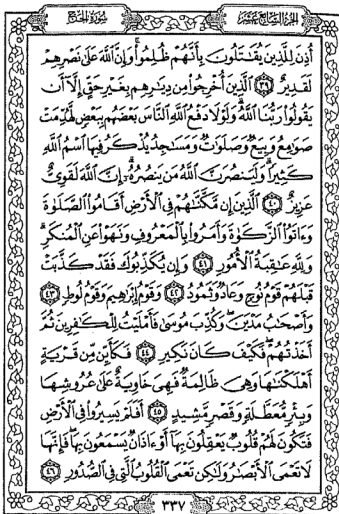 الجزء السابع عشر
سورة الحج
أُذِنَ لِلَّذِينَ يُقَٰتَلُونَ بِأَنَّهُمْ ظُلِمُوا۟ وَإِنَّ ٱللَّهَ عَلَىٰ نَصْرِهِمْ
لَقَدِيرٌ ٣٩ ٱلَّذِينَ أُخْرِجُوا۟ مِن دِيَٰرِهِم بِغَيْرِ حَقٍّ إِلَّآ أَن
يَقُولُوا۟ رَبُّنَا ٱللَّهُ وَلَوْلَا دَفْعُ ٱللَّهِ ٱلنَّاسَ بَعْضَهُم بِبَعْضٍ لَّهُدِّمَتْ
صَوَٰمِعُ وَبِيَعٌ وَصَلَوَٰتٌ وَمَسَٰجِدُ يُذْكَرُ فِيهَا ٱسْمُ ٱللَّهِ
كَثِيرًا وَلَيَنصُرَنَّ ٱللَّهُ مَن يَنصُرُهُۥٓ إِنَّ ٱللَّهَ لَقَوِىٌّ
عَزِيزٌ ٤٠ ٱلَّذِينَ إِن مَّكَّنَّٰهُمْ فِى ٱلْأَرْضِ أَقَامُوا۟ ٱلصَّلَوٰةَ
وَءَاتَوُا۟ ٱلزَّكَوٰةَ وَأَمَرُوا۟ بِٱلْمَعْرُوفِ وَنَهَوْا۟ عَنِ ٱلْمُنكَرِ
وَلِلَّهِ عَٰقِبَةُ ٱلْأُمُورِ ٤١ وَإِن يُكَذِّبُوكَ فَقَدْ كَذَّبَتْ
قَبْلَهُمْ قَوْمُ نُوحٍ وَعَادٌ وَثَمُودُ ٤٢ وَقَوْمُ إِبْرَٰهِيمَ وَقَوْمُ لُوطٍ ٤٣
وَأَصْحَٰبُ مَدْيَنَ وَكُذِّبَ مُوسَىٰ فَأَمْلَيْتُ لِلْكَٰفِرِينَ ثُمَّ
أَخَذْتُهُمْ فَكَيْفَ كَانَ نَكِيرِ ٤٤ فَكَأَيِّن مِّن قَرْيَةٍ
أَهْلَكْنَٰهَا وَهِىَ ظَالِمَةٌ فَهِىَ خَاوِيَةٌ عَلَىٰ عُرُوشِهَا
وَبِئْرٍ مُّعَطَّلَةٍ وَقَصْرٍ مَّشِيدٍ ٤٥ أَفَلَمْ يَسِيرُوا۟ فِى ٱلْأَرْضِ
فَتَكُونَ لَهُمْ قُلُوبٌ يَعْقِلُونَ بِهَآ أَوْ ءَاذَانٌ يَسْمَعُونَ بِهَا فَإِنَّهَا
لَا تَعْمَى ٱلْأَبْصَٰرُ وَلَٰكِن تَعْمَى ٱلْقُلُوبُ ٱلَّتِى فِى ٱلصُّدُورِ ٤٦
٣٣٧